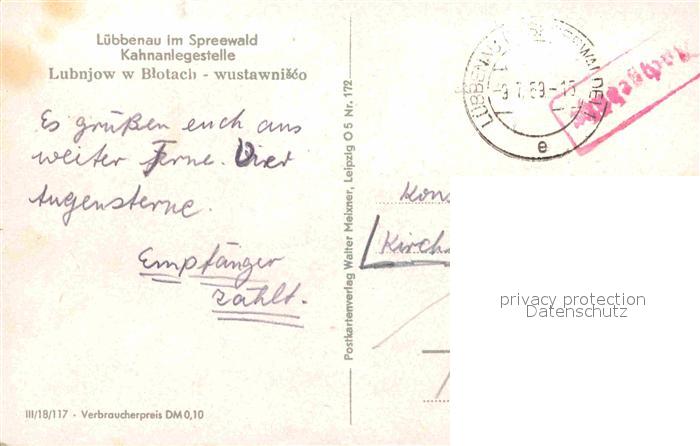 Lübbenau im Spreewald
Kahnanlegestelle
Lubnjow w Błotach - wustawnišćo
Es grüßen euch aus
weiter Ferne. Vier
Augensterne.
Empfänger
zahlt.
III/18/117 · Verbraucherpreis DM 0,10
Postkartenverlag Walter Meixner, Leipzig O 5 Nr. 172
LÜBBENAU
e
Kirch
privacy protection
Datenschutz